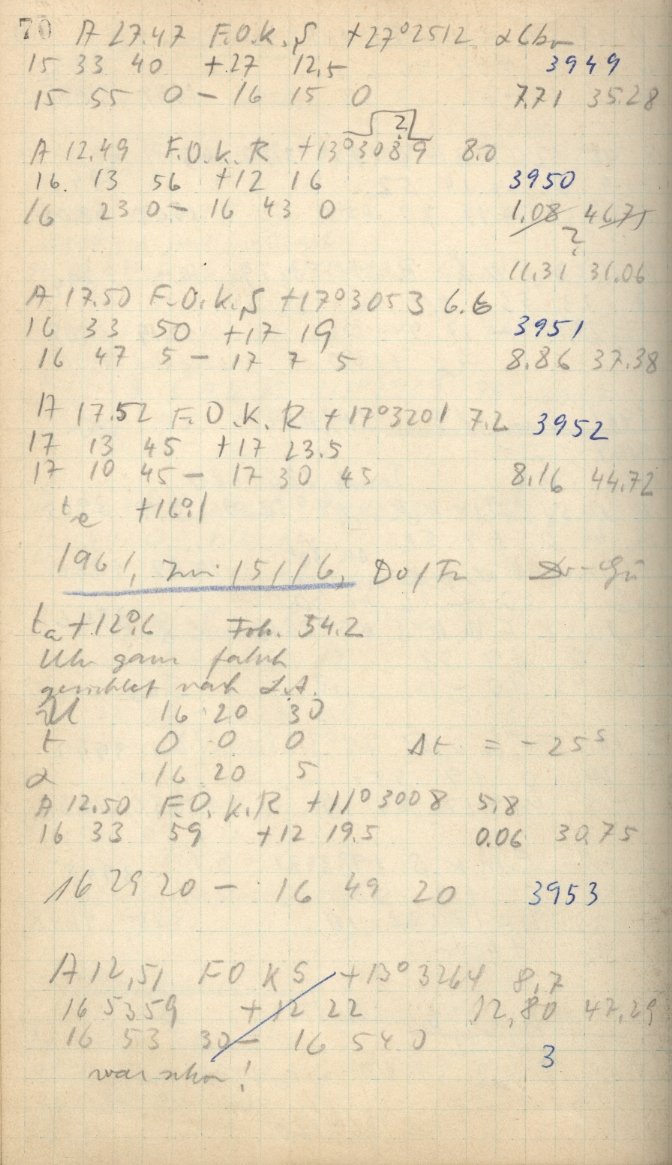 70 A 27.47 F.O.K.S +27°2512 α Cbr
15 33 40 +27 12,5 3949
15 55 0 – 16 15 0 7.71 35.28
2
A 12.49 F.O.K.R +13°3089 8.0
16. 13 56 +12 16 3950
16 23 0 – 16 43 0 1.08 46.75
?
11.31 31.06
A 17.50 F.O.K.S +17°3053 6.6
16 33 50 +17 19 3951
16 47 5 – 17 7 5 8.86 37.38
A 17.52 F.O.K.R +17°3201 7.2 3952
17 13 45 +17 23.5
17 10 45 – 17 30 45 8.16 44.72
te +16°,1
1961, Juni 15/16, Do/Fr
ta +12°,6 Fok. 34.2
Uhr ganz falsch
gerichtet nach
U 16 20 30
t 0 0 0 Δt = –25s
α 16 20 5
A 12.50 F.O.K.R +11°3008 5,8
16 33 59 +12 19.5 0.06 30.75
16 29 20 – 16 49 20 3953
A 12,51 F O K S +13°3264 8,7
16 53 59 +12 22 12,80 47,29
16 53 30 – 16 54 0 3
war schon!